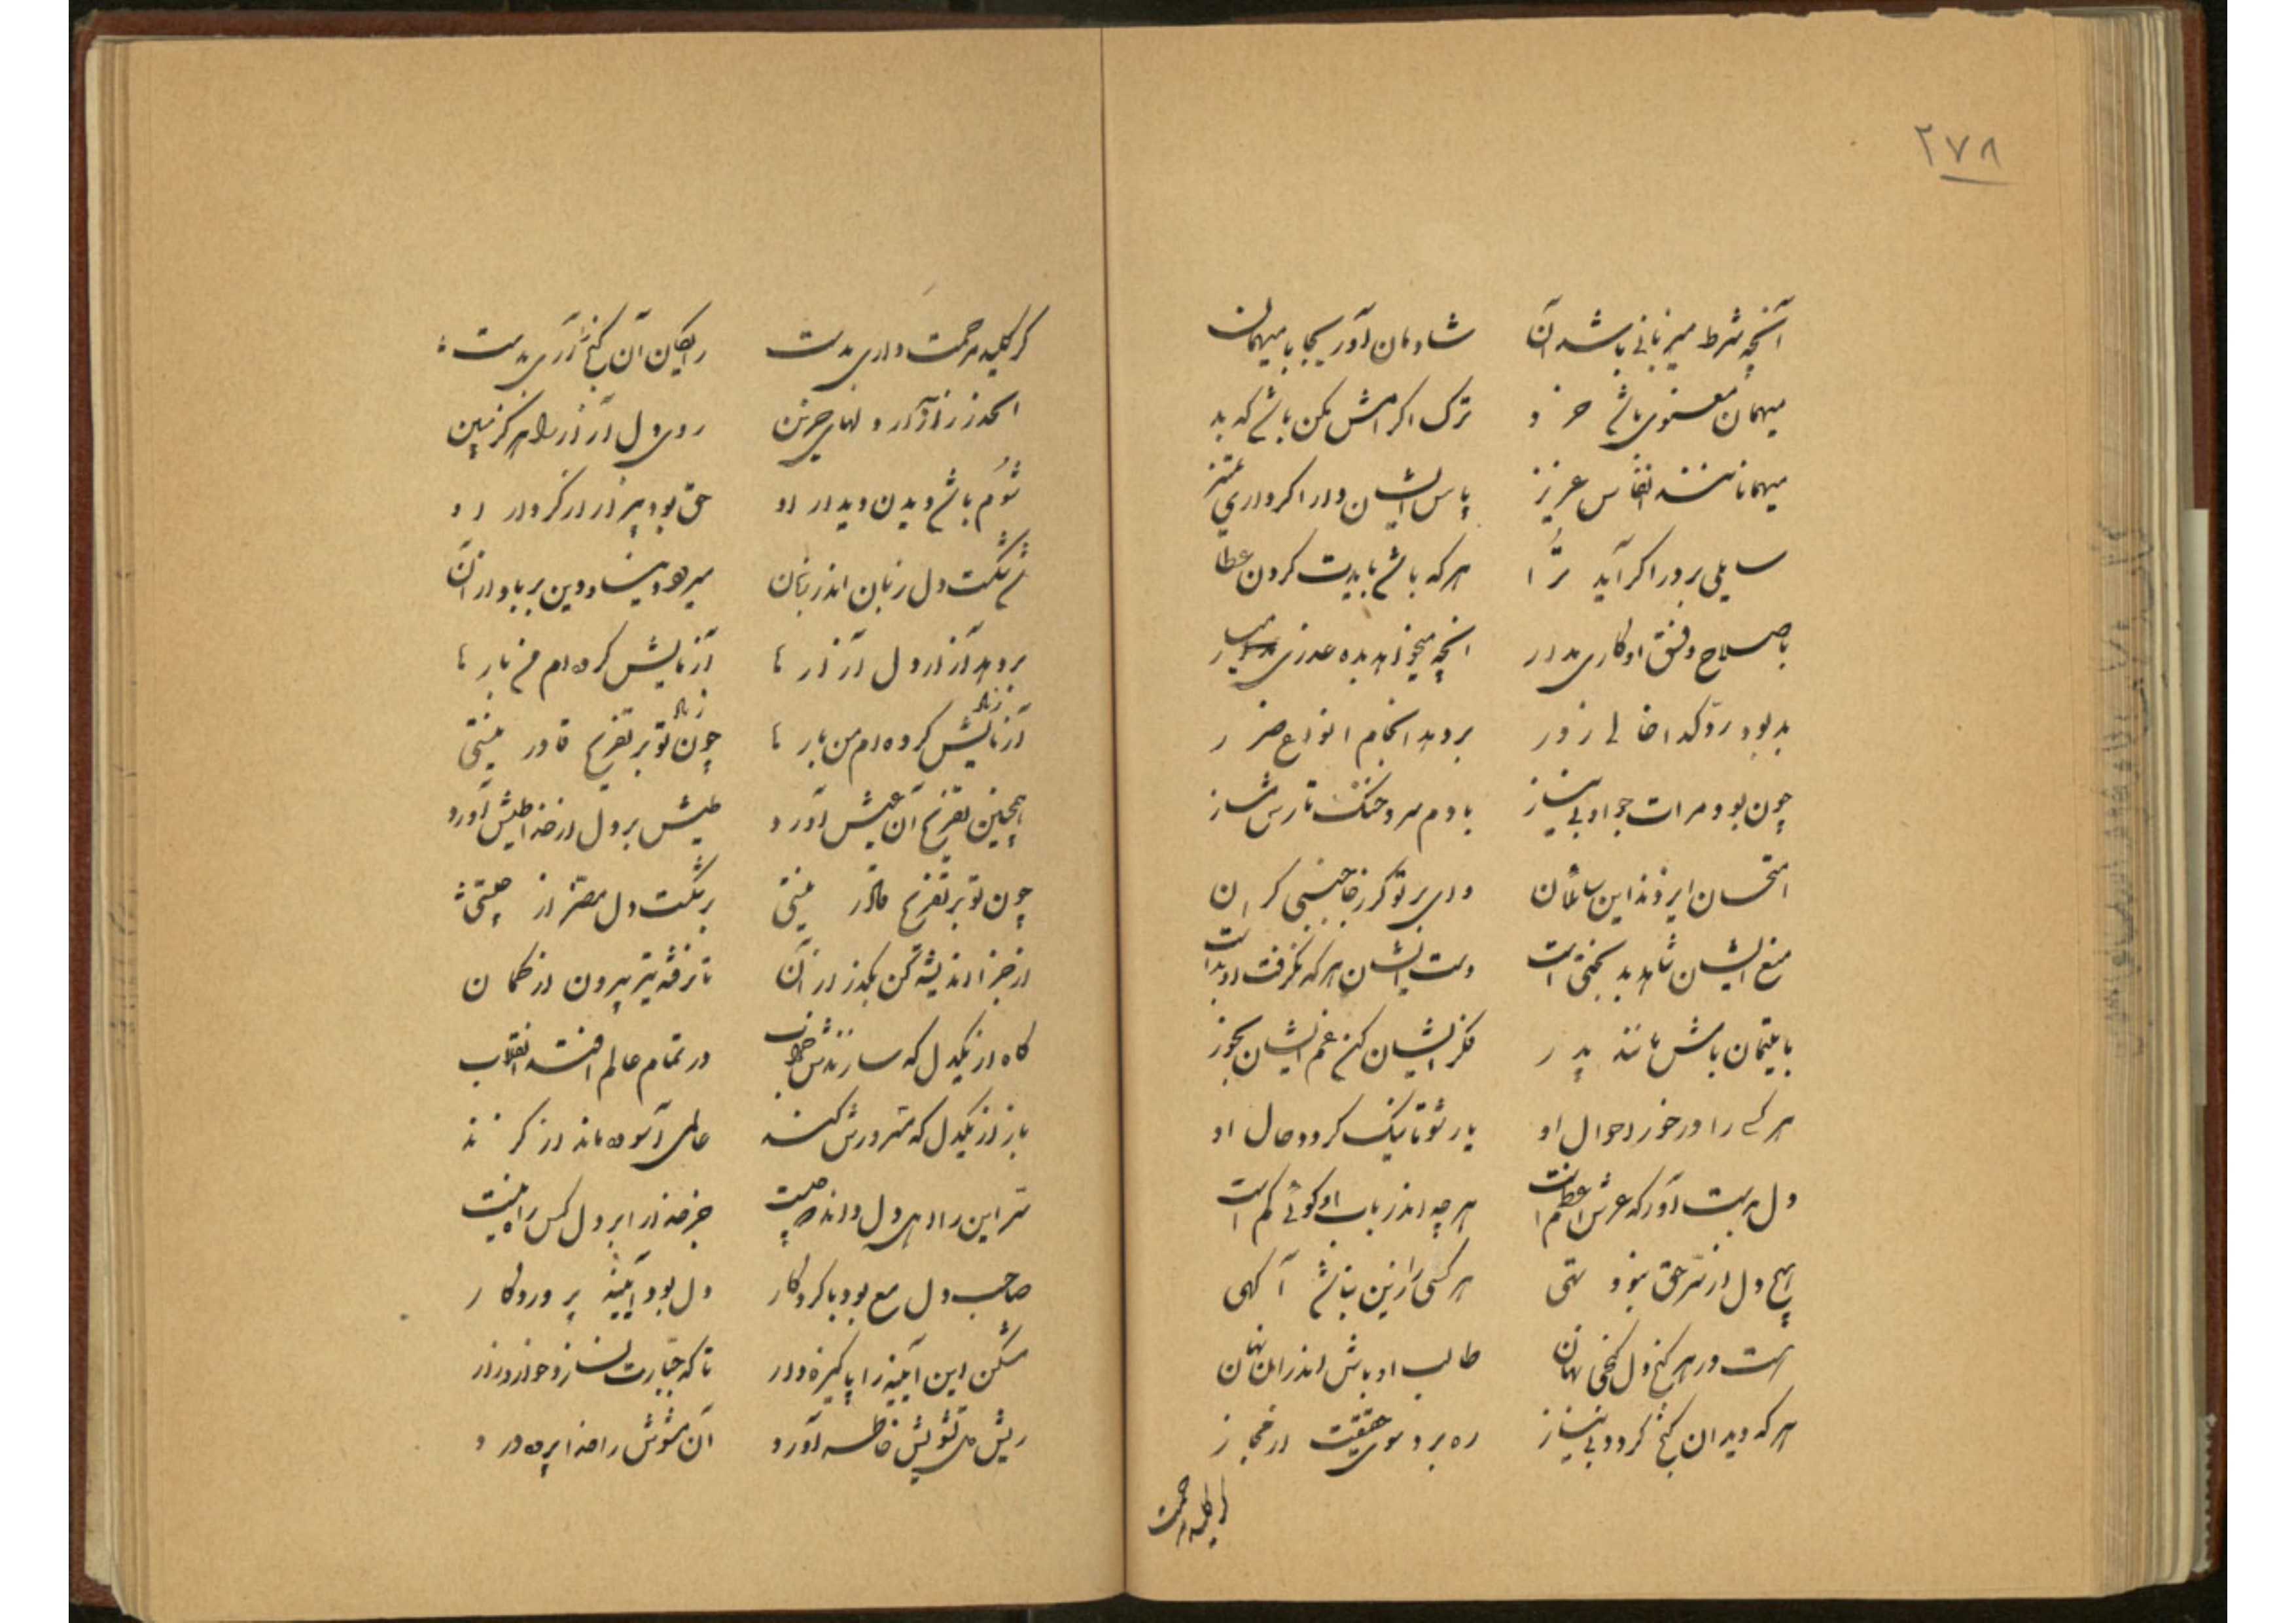 ۲۷۸
آنچه شرط میزبانی باشد آن شادمان آور بجا با میهمان
میهمان معنوی باشد خرد ترک اکرامش مکن باشد که بد
میهمانانند انفاس عزیز پاس ایشان دار اگر داری تمیز
سایلی بر در اگر آید ترا هر که باشد بایدت کردن عطا
با صلاح و فسق او کاری مدار آنچه میخواهد بده عذری میار
بد بود رد گدا خالی ز در بر دهد انجام انواع ضرر
چون بود مرات جود او بی نیاز با دم سرد خنک تارش مساز
امتحان ایزدند این سائلان وای بر تو گر ز خاجنبی گران
منع ایشان شاهد بدبختی است دست ایشان هر که نگرفت او بد است
با یتیمان باش مانند پدر فکر ایشان کن غم ایشان بخور
هر کسی را در خور احوال او یار شو تا نیک گردد حال او
دل بدست آور که عرش اعظم است هر چه اندر باب او گوئی کم است
هیچ دل از سر حق نبود تهی هر کسی را زین نباشد آگهی
هست در هر کنج دل گنجی نهان طالب او باش اندر آن نهان
هر که دید آن گنج گردد بی نیاز ره برد سوی حقیقت از مجاز
گر کلید مرحمت
گر کلید مرحمت داری بدست رایگان آن گنج را آری بدست
الحذر ز آزار دلهای حزین روی دل آزار را هرگز مبین
شوم باشد دیدن دیدار او حق بود بیزار از کردار او
شد شکست دل زیان اندر زیان میرود دنیا و دین بر باد از آن
بر دهد آزار دل آزارها آزمایش کرده‌ام من بارها
آزمایش کرده‌ام من بارها چون تو بر تفریح قادر نیستی
همچنین تفریح آن عیش آورد طیش بر دل از خدا طیش آورد
چون تو بر تفریح قادر نیستی بر شکست دل مصر از چیستی
از جزا اندیشه کن بگذر از آن تا نرفته تیر بیرون از کمان
گاه از یکدل که سازندش خراب در تمام عالم افتد انقلاب
باز از یکدل که مسرورش کنند عالمی آسوده ماند از گزند
سر این را اهل دل داند که چیست جز خدا را بر دل کس راه نیست
صاحب دل مع بود با کردگار دل بود آیینه پروردگار
مشکن این آیینه را پاکیزه دار تا که جبارت نسازد خوار و زار
ریش دل تشویش خاطر آورد آن مشوش را خدا پرده درد